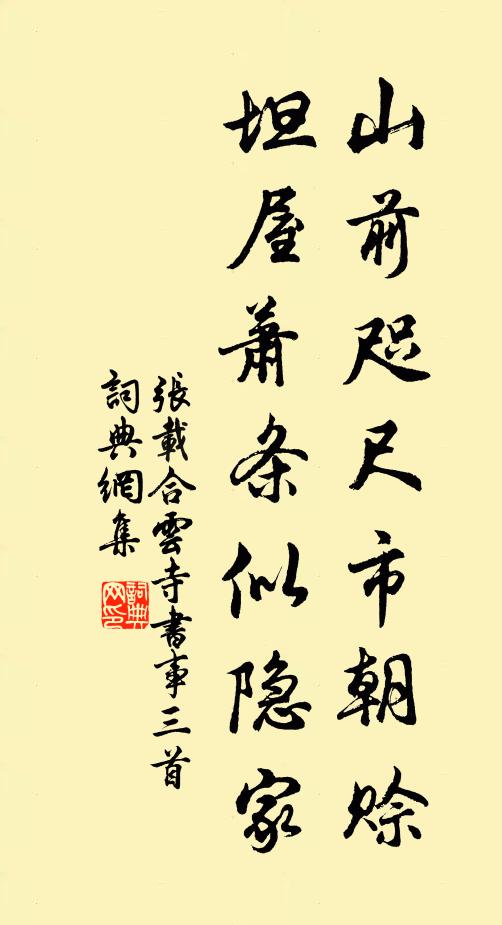 山前咫尺市朝赊
坦屋蕭条似隐家
張載合雲寺書事三首
詞典網集
詞典网印